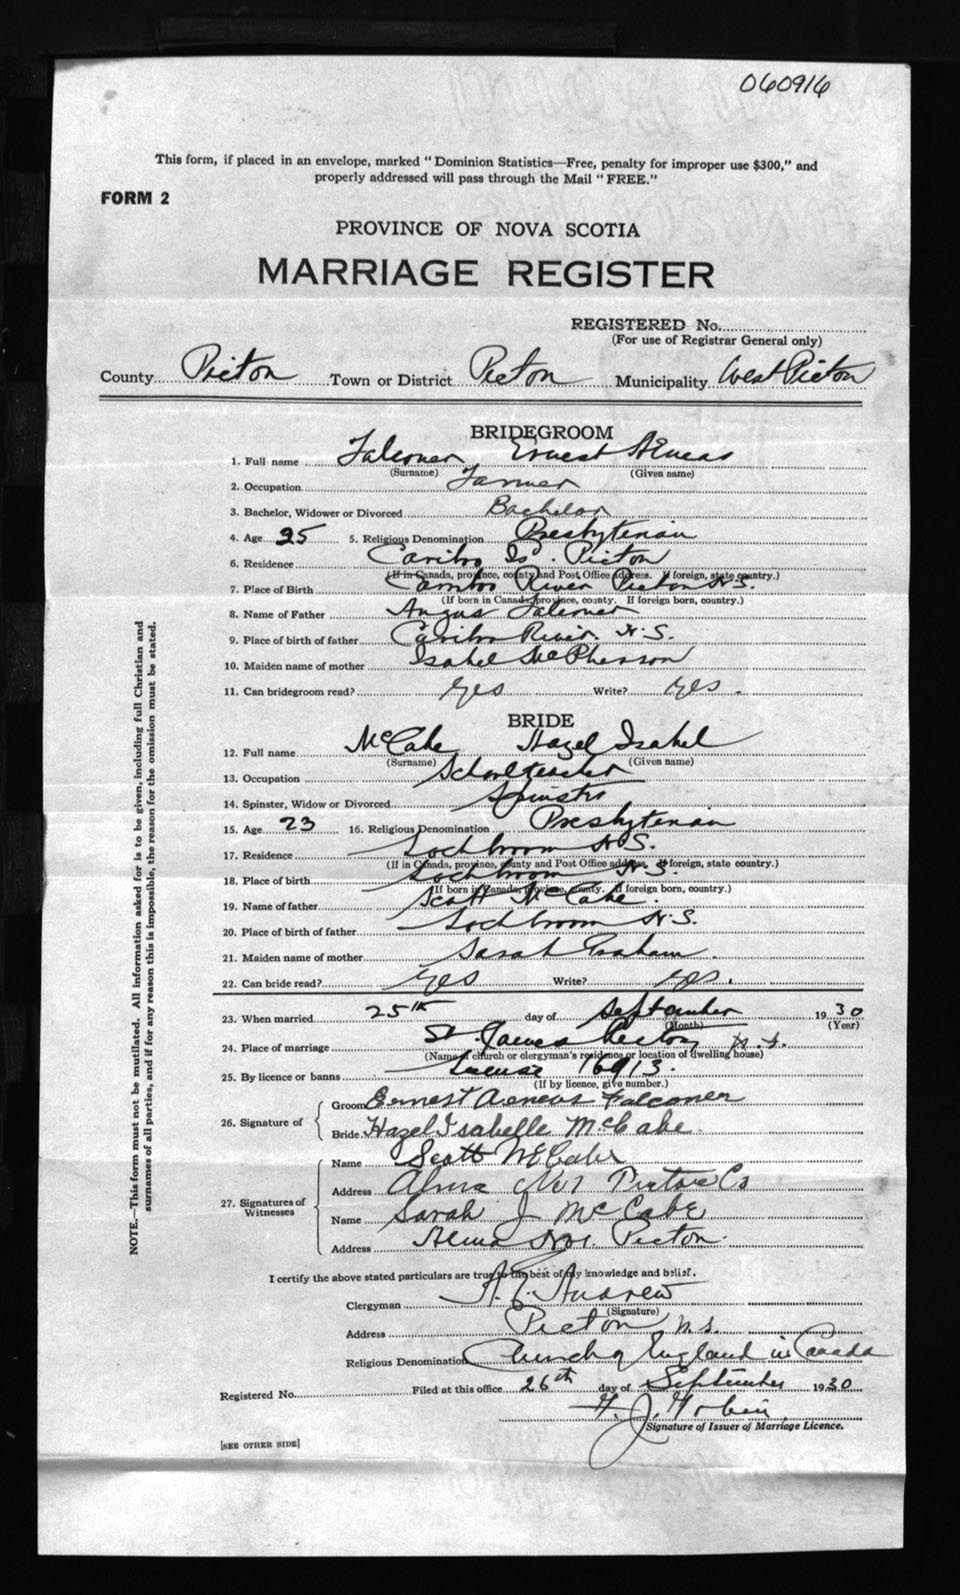 060916
This form, if placed in an envelope, marked "Dominion Statistics—Free, penalty for improper use $300," and
properly addressed will pass through the Mail "FREE."
FORM 2
PROVINCE OF NOVA SCOTIA
MARRIAGE REGISTER
REGISTERED No.
(For use of Registrar General only)
County Pictou Town or District Pictou Municipality West Pictou
BRIDEGROOM
1. Full name Falconer Ernest Aeneas
(Surname) (Given name)
2. Occupation Farmer
3. Bachelor, Widower or Divorced Bachelor
4. Age 25 5. Religious Denomination Presbyterian
6. Residence Caribo Is. Pictou
(If in Canada, province, county and Post Office address. If foreign, state country.)
7. Place of Birth Caribo River Pictou N.S.
(If born in Canada, province, county. If foreign born, country.)
8. Name of Father Angus Falconer
9. Place of birth of father Caribo River. N.S.
10. Maiden name of mother Isabel McPherson
11. Can bridegroom read? yes Write? yes.
BRIDE
12. Full name McCabe Hazel Isabel
(Surname) (Given name)
13. Occupation Schoolteacher
14. Spinster, Widow or Divorced Spinster
15. Age 23 16. Religious Denomination Presbyterian
17. Residence Lochbroom N.S.
(If in Canada, province, county and Post Office address. If foreign, state country.)
18. Place of birth Lochbroom N.S.
(If born in Canada, province, county. If foreign born, country.)
19. Name of father Scott McCabe.
20. Place of birth of father Lochbroom N.S.
21. Maiden name of mother Sarah Graham.
22. Can bride read? yes Write? yes.
23. When married 25th day of September 1930
(Month) (Year)
24. Place of marriage St. James Pictou N.S.
(Name of church or clergyman's residence or location of dwelling house)
25. By licence or banns License 16913.
(If by licence, give number.)
26. Signature of
Groom Ernest Aeneas Falconer
Bride Hazel Isabelle McCabe.
27. Signatures of Witnesses
Name Scott McCabe
Address Alma Pictou Co
Name Sarah J McCabe
Address Alma Pictou.
I certify the above stated particulars are true to the best of my knowledge and belief.
Clergyman A. E. Andrew
(Signature)
Address Pictou N.S.
Religious Denomination Church of England in Canada
Registered No. Filed at this office 26th day of September 1930
H. J.
Signature of Issuer of Marriage Licence.
[SEE OTHER SIDE]
NOTE.—This form must not be mutilated. All information asked for is to be given, including full Christian and
surnames of all parties, and if for any reason this is impossible, the reason for the omission must be stated.